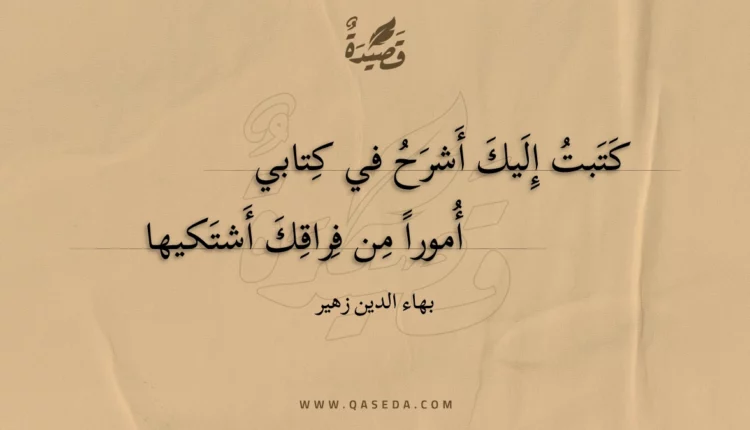 قَصِيْدَةٌ
كَتَبتُ إِلَيكَ أَشرَحُ في كِتابي
أُموراً مِن فِراقِكَ أَشتَكيها
بهاء الدين زهير
WWW.QASEDA.COM